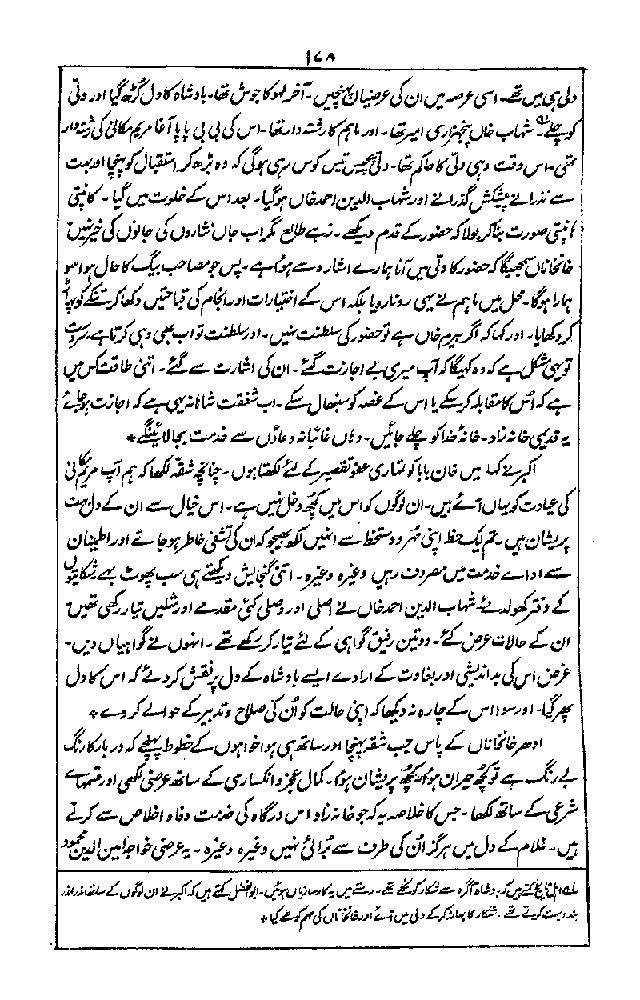 ۱۷۸
دلی ہی میں تھے۔ اسی عرصہ میں ان کی عرضیاں پہنچیں۔ آخر لہو کا جوش تھا۔ بادشاہ کا دل گڑھ گیا اور دلی
کو چلے شہاب خاں پنجہزاری امیر تھا۔ اور ماہم کا رشتہ دار تھا۔ اس کی بی بی بابا آغا مریم مکانی کی رشتہ دار
تھی۔ اس وقت وہی دلی کا حاکم تھا۔ دلی پچیس تیس کوس رہی ہوگی کہ وہ بڑھ کر استقبال کو پہنچا اور بہت
سے نذرانے پیشکش گذرانے اور شہاب الدین احمد خاں ہو گیا۔ بعد اس کے خلوت میں گیا۔ کانپتی
کانپتی صورت بنا کر بولا کہ حضور کے قدم دیکھے۔ زہے طالع مگر اب جاں نثاروں کی جانوں کی خیر نہیں
خانخاناں سمجھیگا کہ حضور کا دلی میں آنا ہمارے اشارہ سے ہوا ہے۔ پس جو مصاحب بیگ کا حال ہوا سو
ہمارا ہوگا۔ محل میں ماہم نے یہی رونا رویا بلکہ اس کے اختیارات اور انجام کی قباحتیں دکھا کر تنکے کو پہاڑ
کر دکھایا۔ اور کہا کہ اگر بیرم خاں ہے تو حضور کی سلطنت نہیں۔ اور سلطنت تو اب بھی وہی کرتا ہے سردست
تو یہی مشکل ہے کہ وہ کہیگا کہ آپ میری بے اجازت گئے۔ ان کی اشارت سے گئے۔ اتنی طاقت کس میں
ہے کہ اس کا مقابلہ کر سکے یا اس کے غصہ کو سنبھال سکے۔ اب شفقت شاہانہ یہی ہے کہ اجازت ہو جائے
یہ قدیمی خانہ زاد۔ خانۂ خدا کو چلے جائیں۔ وہاں غائبانہ دعاؤں سے خدمت بجا لائینگے ٭
اکبر نے کہا میں خان بابا کو تمہاری عفو تقصیر کے لئے لکھتا ہوں۔ چنانچہ شقہ لکھا کہ ہم آپ مریم مکانی
کی عیادت کو یہاں آئے ہیں۔ ان لوگوں کو اس میں کچھ دخل نہیں ہے۔ اس خیال سے ان کے دل بہت
پریشان ہیں۔ تم ایک خط اپنی مہر و دستخط سے انہیں لکھ بھیجو کہ ان کی تشفی خاطر ہو جائے اور اطمینان
سے ادائے خدمت میں مصروف رہیں وغیرہ وغیرہ۔ اتنی گنجایش دیکھتے ہی سب پھوٹ بہے شکایتوں
کے دفتر کھولدئے شہاب الدین احمد خاں نے اصلی اور وصلی کئی مقدمے اور مثلیں تیار رکھی تھیں
ان کے حالات عرض کئے۔ دو تین رفیق گواہی کے لئے تیار کر رکھے تھے۔ انہوں نے گواہیاں دیں۔
غرض اس کی بد اندیشی اور بغاوت کے ارادے ایسے بادشاہ کے دل پر نقش کر دئے کہ اس کا دل
پھر گیا۔ اور سوا اس کے چارہ نہ دیکھا کہ اپنی حالت کو اُن کی صلاح و تدبیر کے حوالے کر دے ٭
ادھر خانخاناں کے پاس جب شقہ پہنچا اور ساتھ ہی ہوا خواہوں کے خطوط پہنچے کہ دربار کا رنگ
بے رنگ ہے تو کچھ حیران ہوا کچھ پریشان ہوا۔ کمال عجز و انکساری کے ساتھ عرضی لکھی اور قسمہائے
شرعی کے ساتھ لکھا۔ جس کا خلاصہ یہ کہ جو خانہ زاد اس درگاہ کی خدمت وفا و اخلاص سے کرتے
ہیں۔ غلام کے دل میں ہرگز اُن کی طرف سے بُرائی نہیں وغیرہ وغیرہ۔ یہ عرضی خواجہ امین الدین محمود
تاریخ کہتے ہیں کہ بادشاہ آگرہ سے شکار کو نکلے تھے۔ رستے میں یہ کارسازیاں ہوئیں۔ ابو الفضل کہتے ہیں کہ اکبر نے ان لوگوں کے ساتھ اندر اندر
بندوبست کر لئے تھے۔ شکار کا بہانہ کر کے دلی میں آئے اور خانخاناں کی مہم کو طے کیا ٭